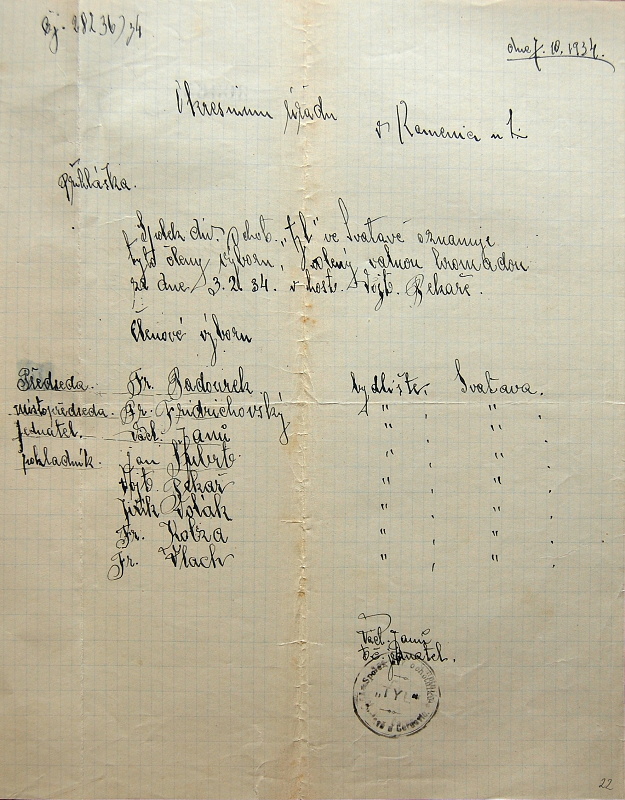 čj. 28236/34
dne 7. 10. 1934.
Okresnímu úřadu
v Kamenici n L.
Přihláška.
Spolek div. ochot. „Tyl“ ve Svatavé oznamuje
tyto členy výboru, zvolený valnou hromadou
ze dne 3. 2. 34. v host. Vojt. Pekaře.
Členové výboru
Předseda. Fr. Badourek bydliště. Svatava.
místopředseda. Fr. Fridrichovský " , " .
Jednatel. Václ. Janů " , " .
pokladník. Jan Šubrt " , " .
Vojt. Pekař " , " .
Jiřík Polák " , " .
Fr. Kobza " , " .
Fr. Vlach " , " .
Václ. Janů
t. č. jednatel.
Spolek
„TYL“
22